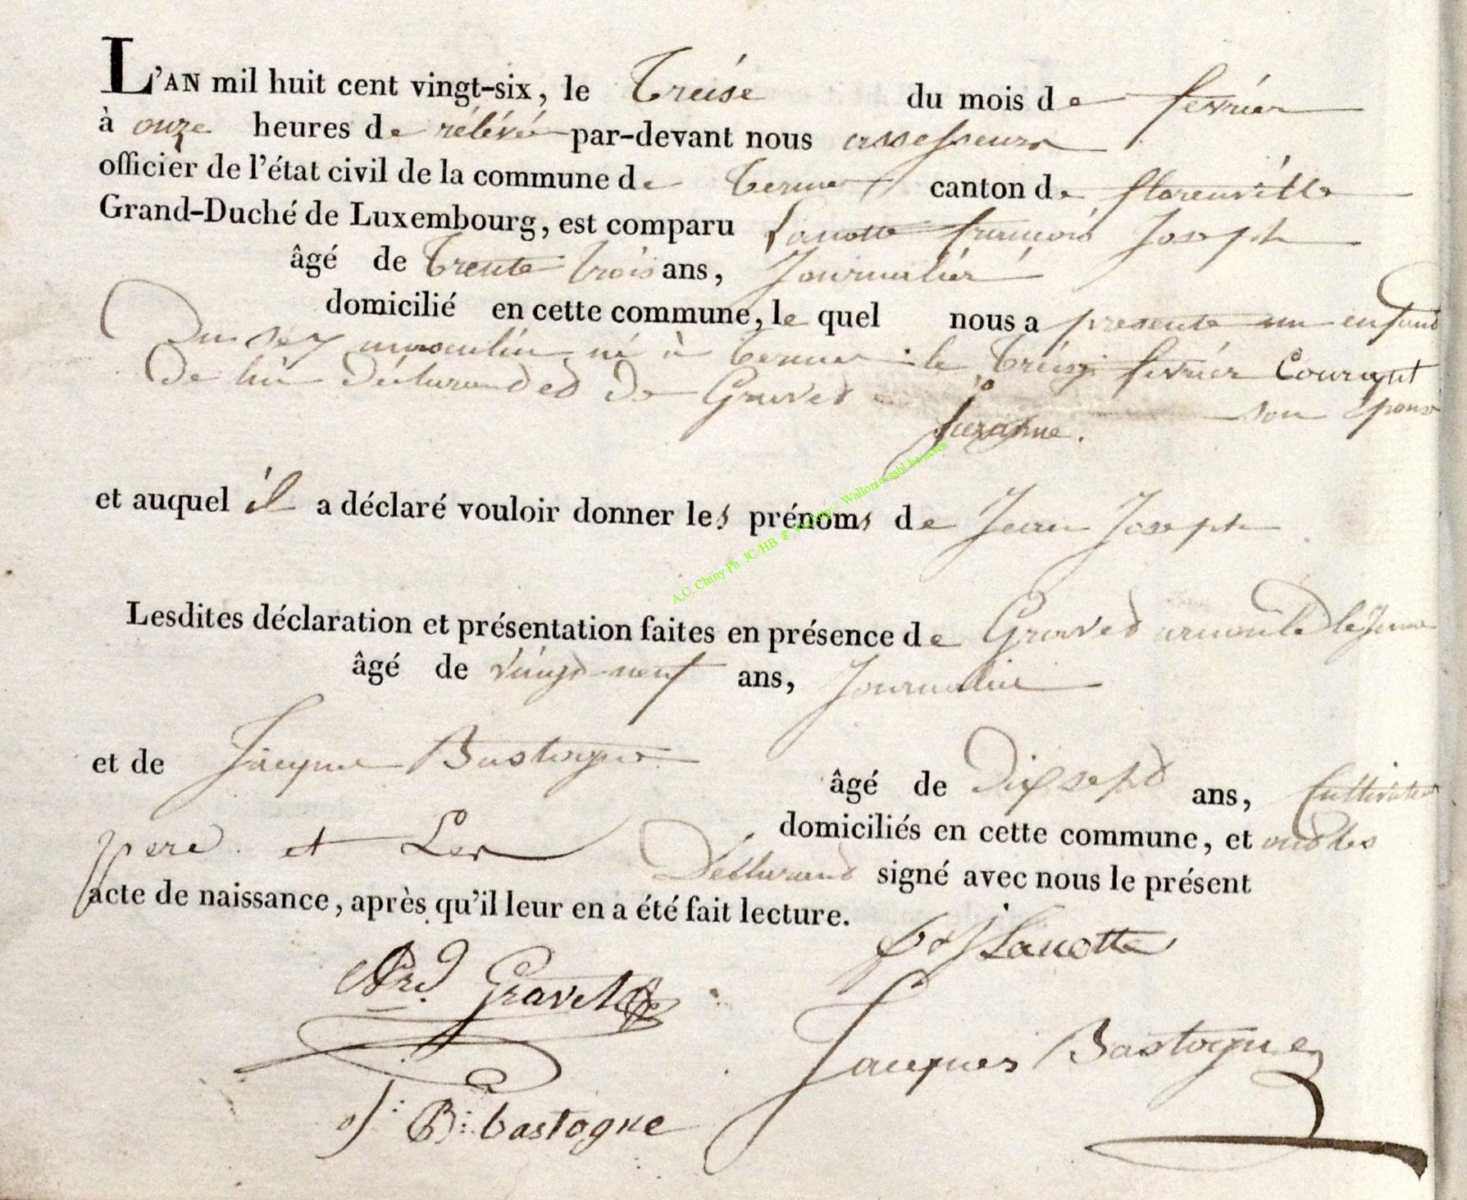 L'AN mil huit cent vingt-six, le Treise du mois de fevrier
à onze heures de rélévé par-devant nous assesseurs
officier de l'état civil de la commune de Termes canton de florenville
Grand-Duché de Luxembourg, est comparu Lanotte francois Joseph
âgé de Trente trois ans, Journalier
domicilié en cette commune, le quel nous a presente un enfand
Du sex masculin né à Termes le treize fevrier Courant
De lui déclarand ed De Graved Suzanne son épouse
et auquel il a déclaré vouloir donner les prénoms de Jean Joseph
Lesdites déclaration et présentation faites en présence de Graved arnould le Jeune
âgé de vingt neuf ans, Journalier
et de Jacque Bastogne âgé de Dix sept ans, Cultivateur
domiciliés en cette commune, et ond les
pere et Les Déclarand signé avec nous le présent
acte de naissance, après qu'il leur en a été fait lecture.
Lanotte
Ard. Gravet
Jacques Bastogne
J: B: bastogne
A.C. Chiny Ph. JC-HB